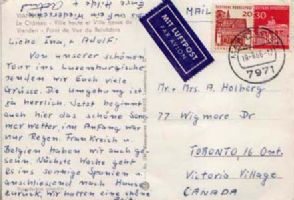 Eure Hilde +
Le Château
Vianden - Pont et Vue du Belvédère
Liebe Ina, + Adolf.
Von unserer schönen
Tour ins Luxemburgische
senden wir Euch viele
Grüsse. Die Umgebung ist
ja herrlich. Jetzt beginnt
auch hier das schöne Som-
mer wetter, im Anfang war
nur Regen. Frankreich und
Belgien haben wir auch ge-
sehn. Nächste Woche geht
es ins sonnige Spanien +
anschliessend nach Hause
zurück. Wir hatten eine schöne
MAIL
MIT LUFTPOST
PAR AVION
DEUTSCHE BUNDESPOST
20
30
7971
Mr + Mrs A. Holberg
77 Wigmore Dr
TORONTO, 16 Ont.
Victoria Village
CANADA